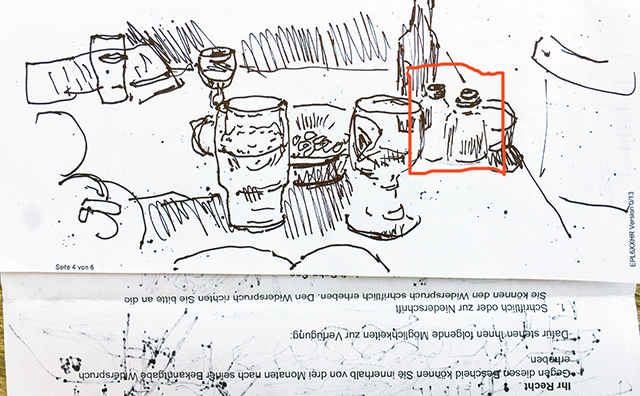 Seite 4 von 6
EPL6XXHR Version 0/13
Ihr Recht
Gegen diesen Bescheid können Sie innerhalb von drei Monaten nach seiner Bekanntgabe Widerspruch
erheben.
Dafür stehen Ihnen folgende Möglichkeiten zur Verfügung:
1. Schriftlich oder zur Niederschrift
Sie können den Widerspruch schriftlich erheben. Den Widerspruch richten Sie bitte an die